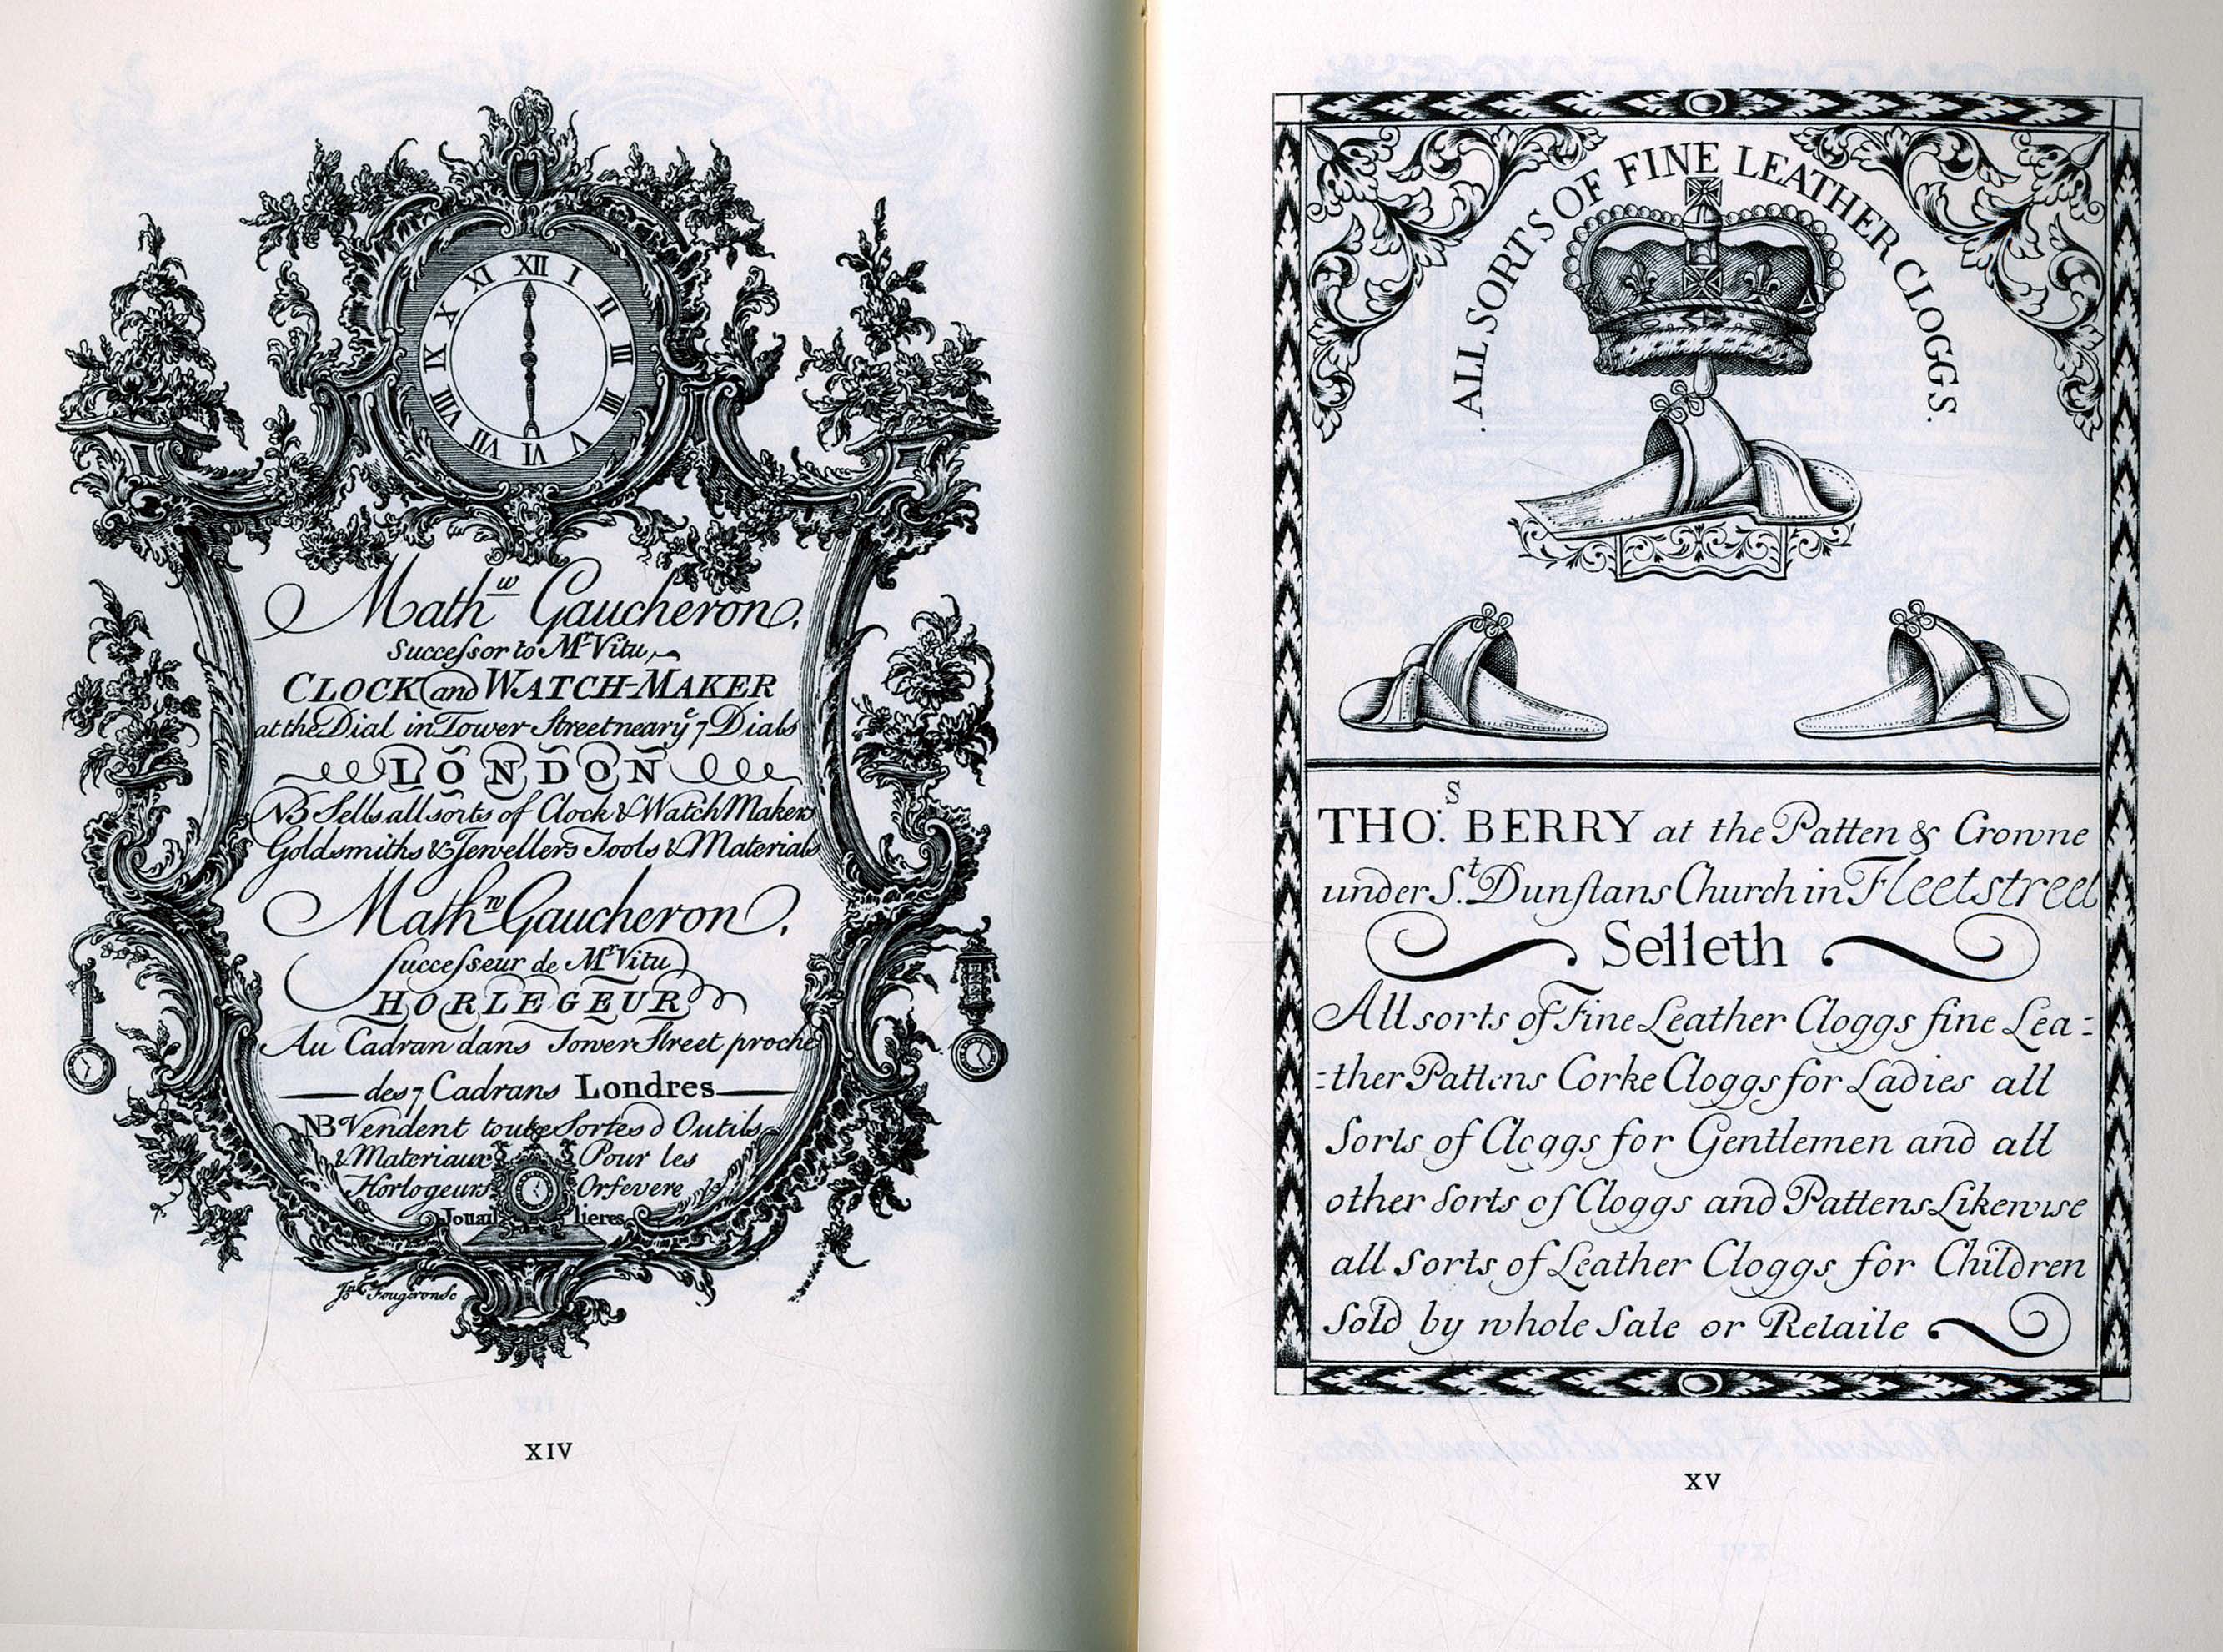 XII I II III IIII V VI VII VIII IX X XI
Math^w Gaucheron,
Succeſsor to M^r Vitu,
CLOCK and WATCH-MAKER
at the Dial in Tower Street near y^e 7 Dials
LONDON
NB Sells all sorts of Clock & Watch Makers
Goldsmiths & Jewellers Tools & Materials
Math^w Gaucheron,
Succeſseur de M^r Vitu
HORLEGEUR
Au Cadran dans Tower Street proche
des 7 Cadrans Londres
NB Vendent toute Sortes d Outils
& Materiaux Pour les
Horlogeurs Orfevere
Jouail lieres
Jn^o Fougeron Sc
XIV
.ALL SORTS OF FINE LEATHER CLOGGS.
THO:^S BERRY at the Patten & Crowne
under S.^t Dunſtans Church in Fleetstreet
Selleth
All sorts of Fine Leather Cloggs fine Lea:
:ther Pattens Corke Cloggs for Ladies all
Sorts of Cloggs for Gentlemen and all
other Sorts of Cloggs and Pattens Likewise
all Sorts of Leather Cloggs for Children
Sold by whole Sale or Retaile
XV